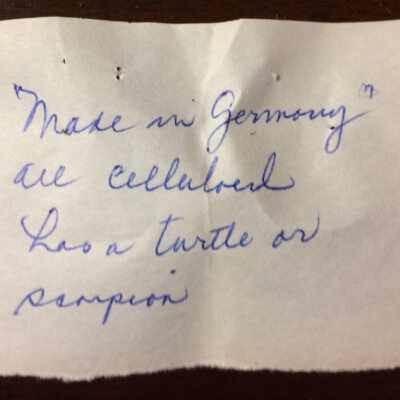 "Made in Germany"
are celluloid
has a turtle or
scorpion